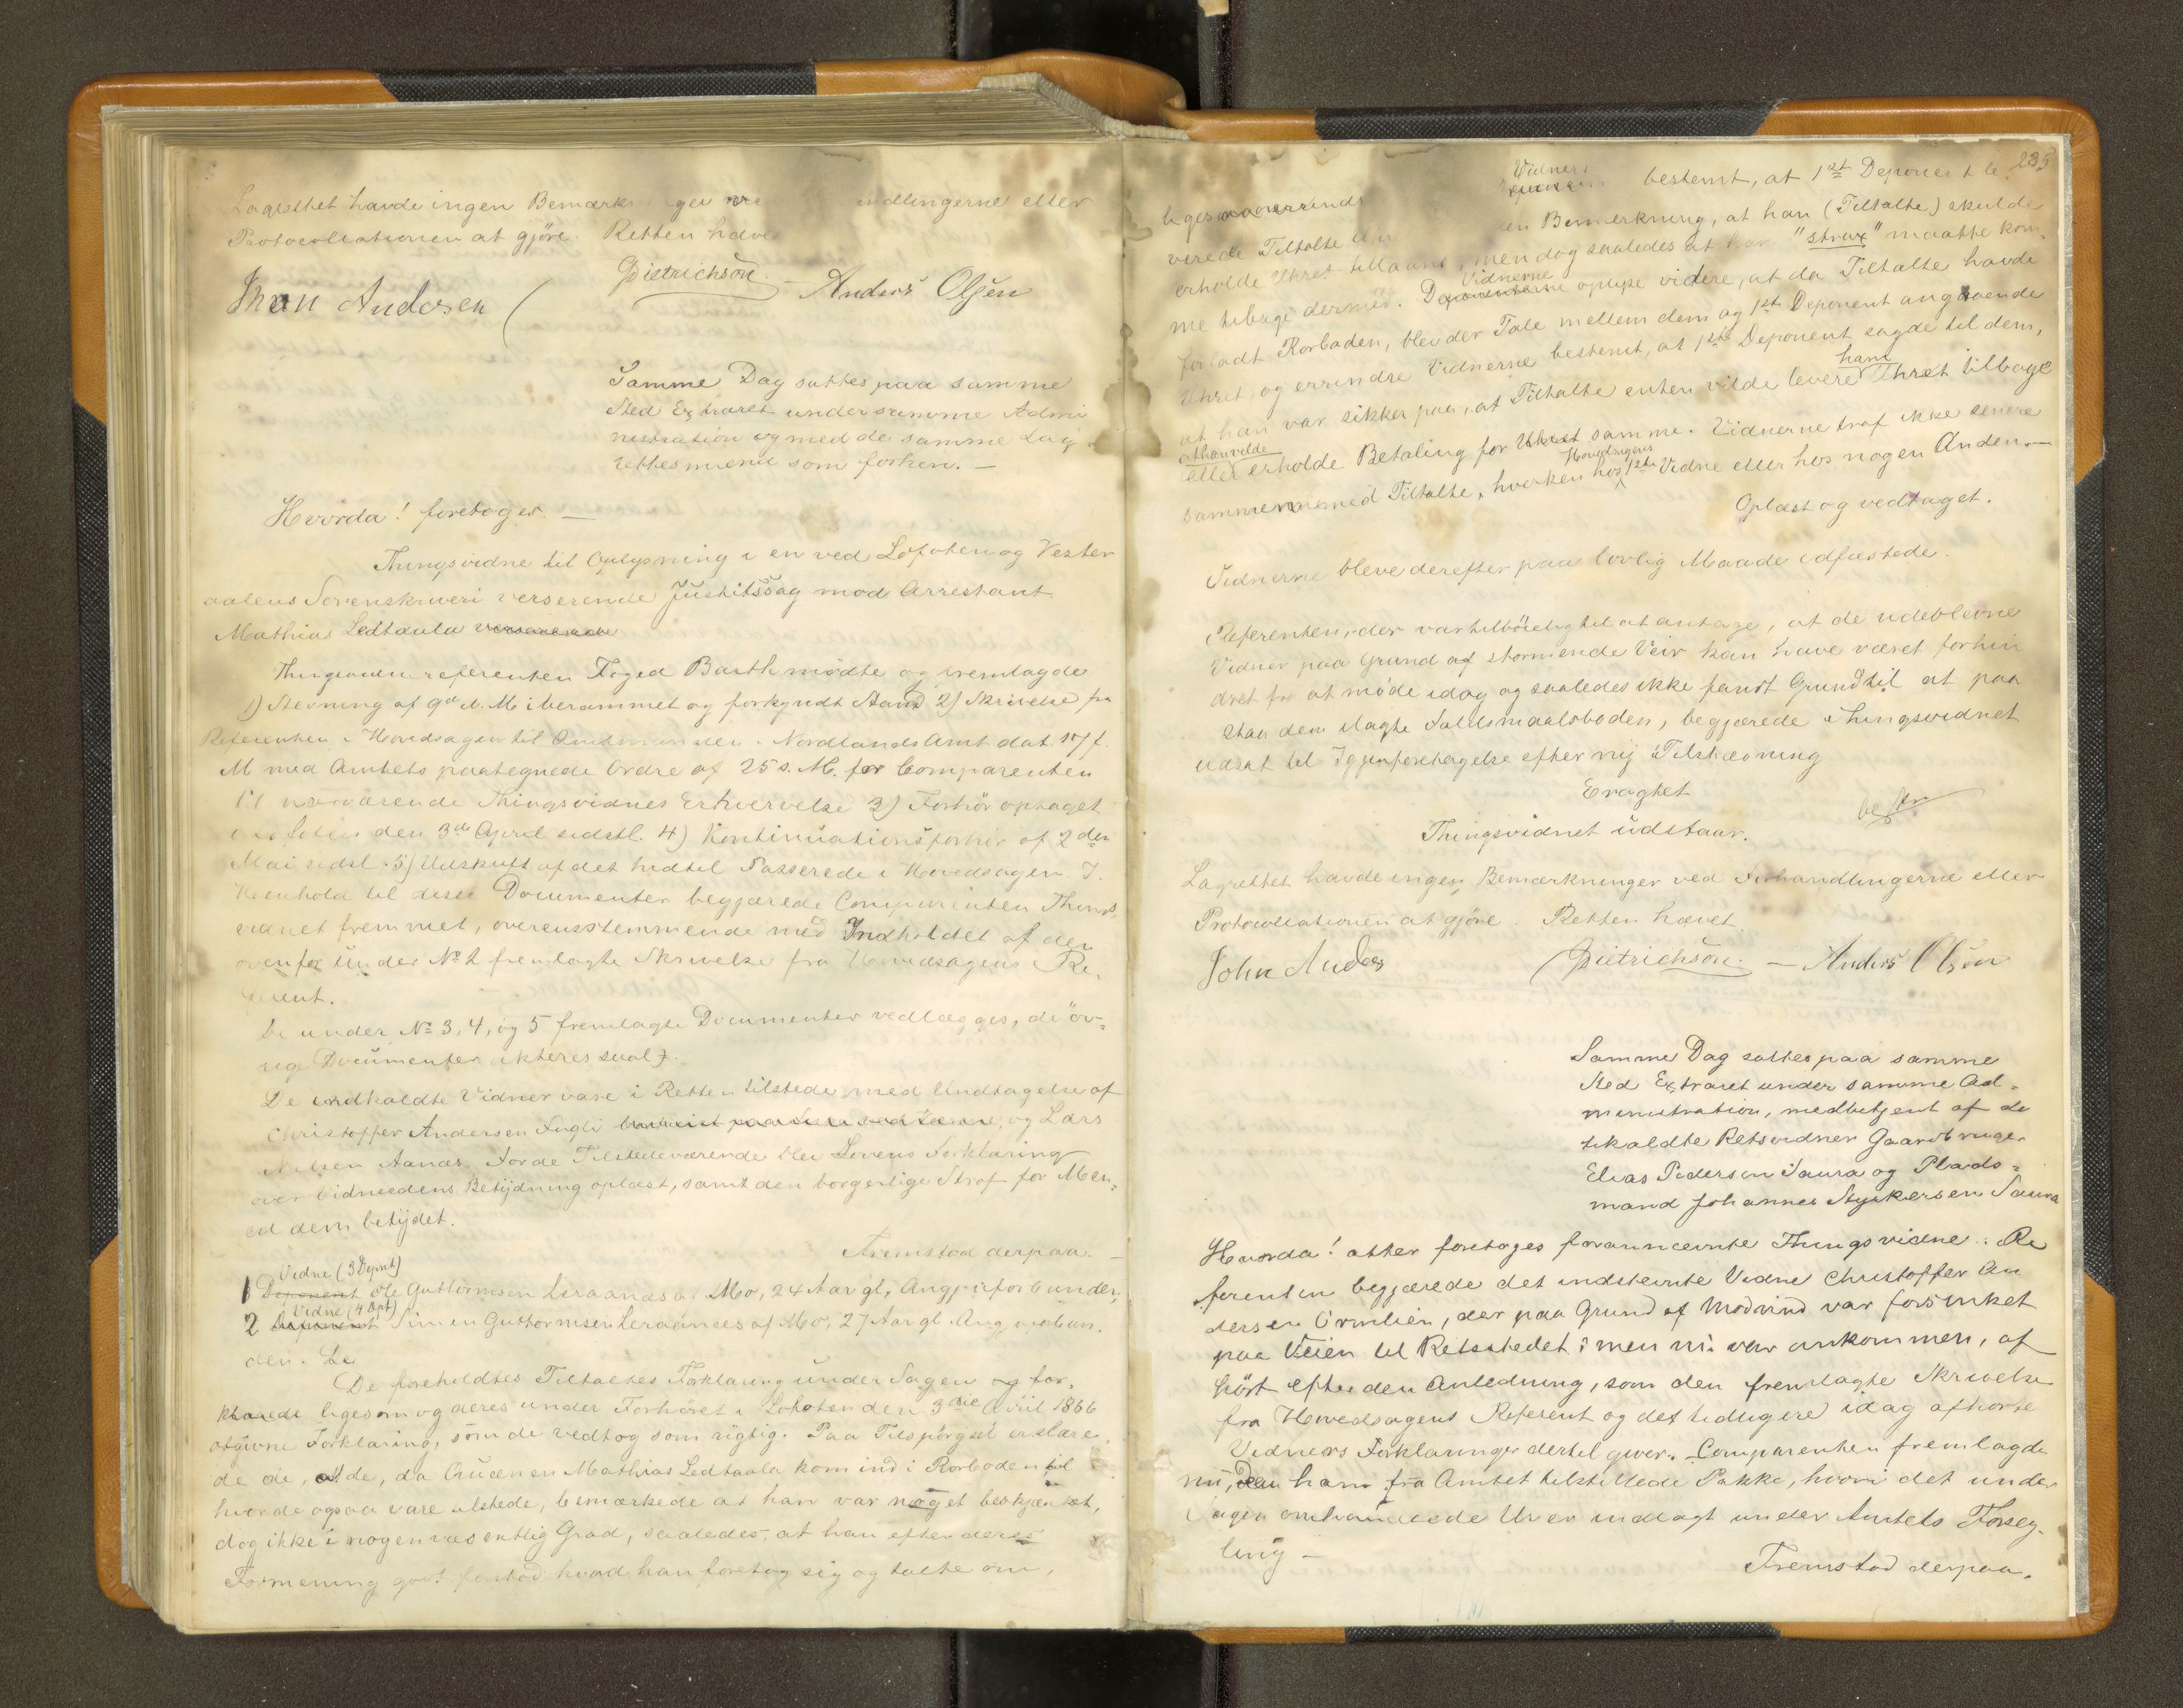 Lagrettet havde ingen Bemærkninger ve ndlingerne eller
Protocollationen at gjöre. Retten hæve
Dietrichson. - Anders Olsen
Andersen
Samme Dag sattes paa samme
Sted Extraret under samme Admi
nistration og med de samme Lag
rettesmænd som forhen. -
Hvorda! foretoges. -
Thingsvidne til Oplysning i en ved Lofoten og Vester
aalens Sorenskriveri verserende Justitssag mod Arrestant
Mathias Ledtaula verserende
Thingsvidnereferenten Foged Barth mödte og fremlagde
1) Stevning af 9de d. M. i berammet og forkyndt Stand 2) Skrivelse fra
Referenten i Hovedsagen til Amtmanden i Nordlands Amt dat. 17 f.
M med Amtets paategnede Ordre af 25 s. M. for Comparenten
til nærværende Thingsvidnes Erhvervelse 3) Forhör optaget
i Lofoten den 3die April sidstl. 4) Kontinuationsforhör af 2den
Mai sidstl. 5) Udskrift af det hidtil Passerede i Hovedsagen. I
Henhold til disse Documenter begjærede Comparenten Things
vidnet fremmet, overensstemmende med Indholdet af den
ovenfor under No 2 fremlagte Skrivelse fra Hovedsagens Re-
ferent.
De under No 3, 4, og 5 fremlagte Documenter vedlægges, de öv-
rige Documenter akteres saal.
De indkaldte Vidner vare i Retten tilstede med Undtagelse af
Christoffer Andersen og Lars
Nilsen Aanæs. For de Tilstedeværende blev Lovens Forklaring
over Vidneedens Betydning oplæst, samt den borgerlige Straf for Men-
ed dem betydet.
Fremstod derpaa. -
Vidne (3 Dpnt)
1 Deponent Ole Guttormsen Leraanæs af Mo, 24 Aar gl. Ang
Vidne (4 Dpt)
2 Deponent Simen Guttormsen Leraanæs af Mo, 27 Aar gl. Ang
den.
De foreholdtes Tiltaltes Forklaring under Sagen og for-
klarede ligesom og deres under Forhöret i Lofoten den 3die April 1866
afgivne Forklaring, som de vedtog som rigtig. Paa Tilspörgsel erklære
de de, at de, da Qvænen Mathias Ledtaula kom ind i Rorboden til
hvor de ogsaa vare tilstede, bemærkede at han var noget beskjænket,
dog ikke i nogen væsentlig Grad, saaledes, at han efter deres
Formening godt forstod hvad han foretog sig og talte om,
235
Vidners
bestemt, at 1ste Deponent le-
verede Tiltalte den Bemærkning, at han (Tiltalte) skulde
erholde Uhret tillaans, men dog saaledes at han "strax" maatte kom-
Vidnerne
me tilbage dermed. Deponenterne oplyse videre, at da Tiltalte havde
forladt Rorboden, blev der Tale mellem dem og 1ste Deponent angaaende
Uhret, og erindre Vidnerne bestemt, at 1ste Deponent sagde til dem,
ham
at han var sikker paa, at Tiltalte enten vilde levere Uhret tilbage
at han vilde
eller erholde Betaling for Uhret samme. Vidnerne traf ikke senere
Hovedsagens
sammen med Tiltalte, hverken hos 1ste Vidne eller hos nogen Anden. -
Oplæst og vedtaget.
Vidnerne bleve derefter paa lovlig Maade edfæstede.
Referenten, der var tilböielig til at antage, at de udeblevne
Vidner paa Grund af stormende Veir kan have været forhin
dret fra at möde idag og saaledes ikke fandt Grund til at paa
staa dem ilagte Faldsmaalsboden, begjærede Thingsvidnet
udsat til Igjenforetagelse efter ny Tilstævning
Eragtet
Thingsvidnet udstaar.
Lagrettet havde ingen Bemærkninger ved Forhandlingerne eller
Protocollationen at gjöre. Retten hævet.
John Anders Dietrichson. - Anders Olsen
Samme Dag sattes paa samme
Sted Extraret under samme Ad-
ministration, medbetjent af de
tilkaldte Retsvidner Gaardbruger
Elias Pedersen Saura og Plads-
mand Johannes Styrkersen Saura
Hvorda! atter foretoges forannævnte Thingsvidne. Re
ferenten begjærede det indstevnte Vidne Christoffer An
dersen Ormlien, der paa Grund af Modvind var forsinket
paa Veien til Retsstedet; men nu var ankommen, af
hört efter den Anledning, som den fremlagte Skrivelse
fra Hovedsagens Referent og det tidligere idag afhörte
Vidners Forklaringer dertil giver. Comparenten fremlagde
nu, den ham fra Amtet tilstillede Pakke, hvori det under
Sagen omhandlede Ur er indlagt under Amtets Forseg-
ling -
Fremstod derpaa.